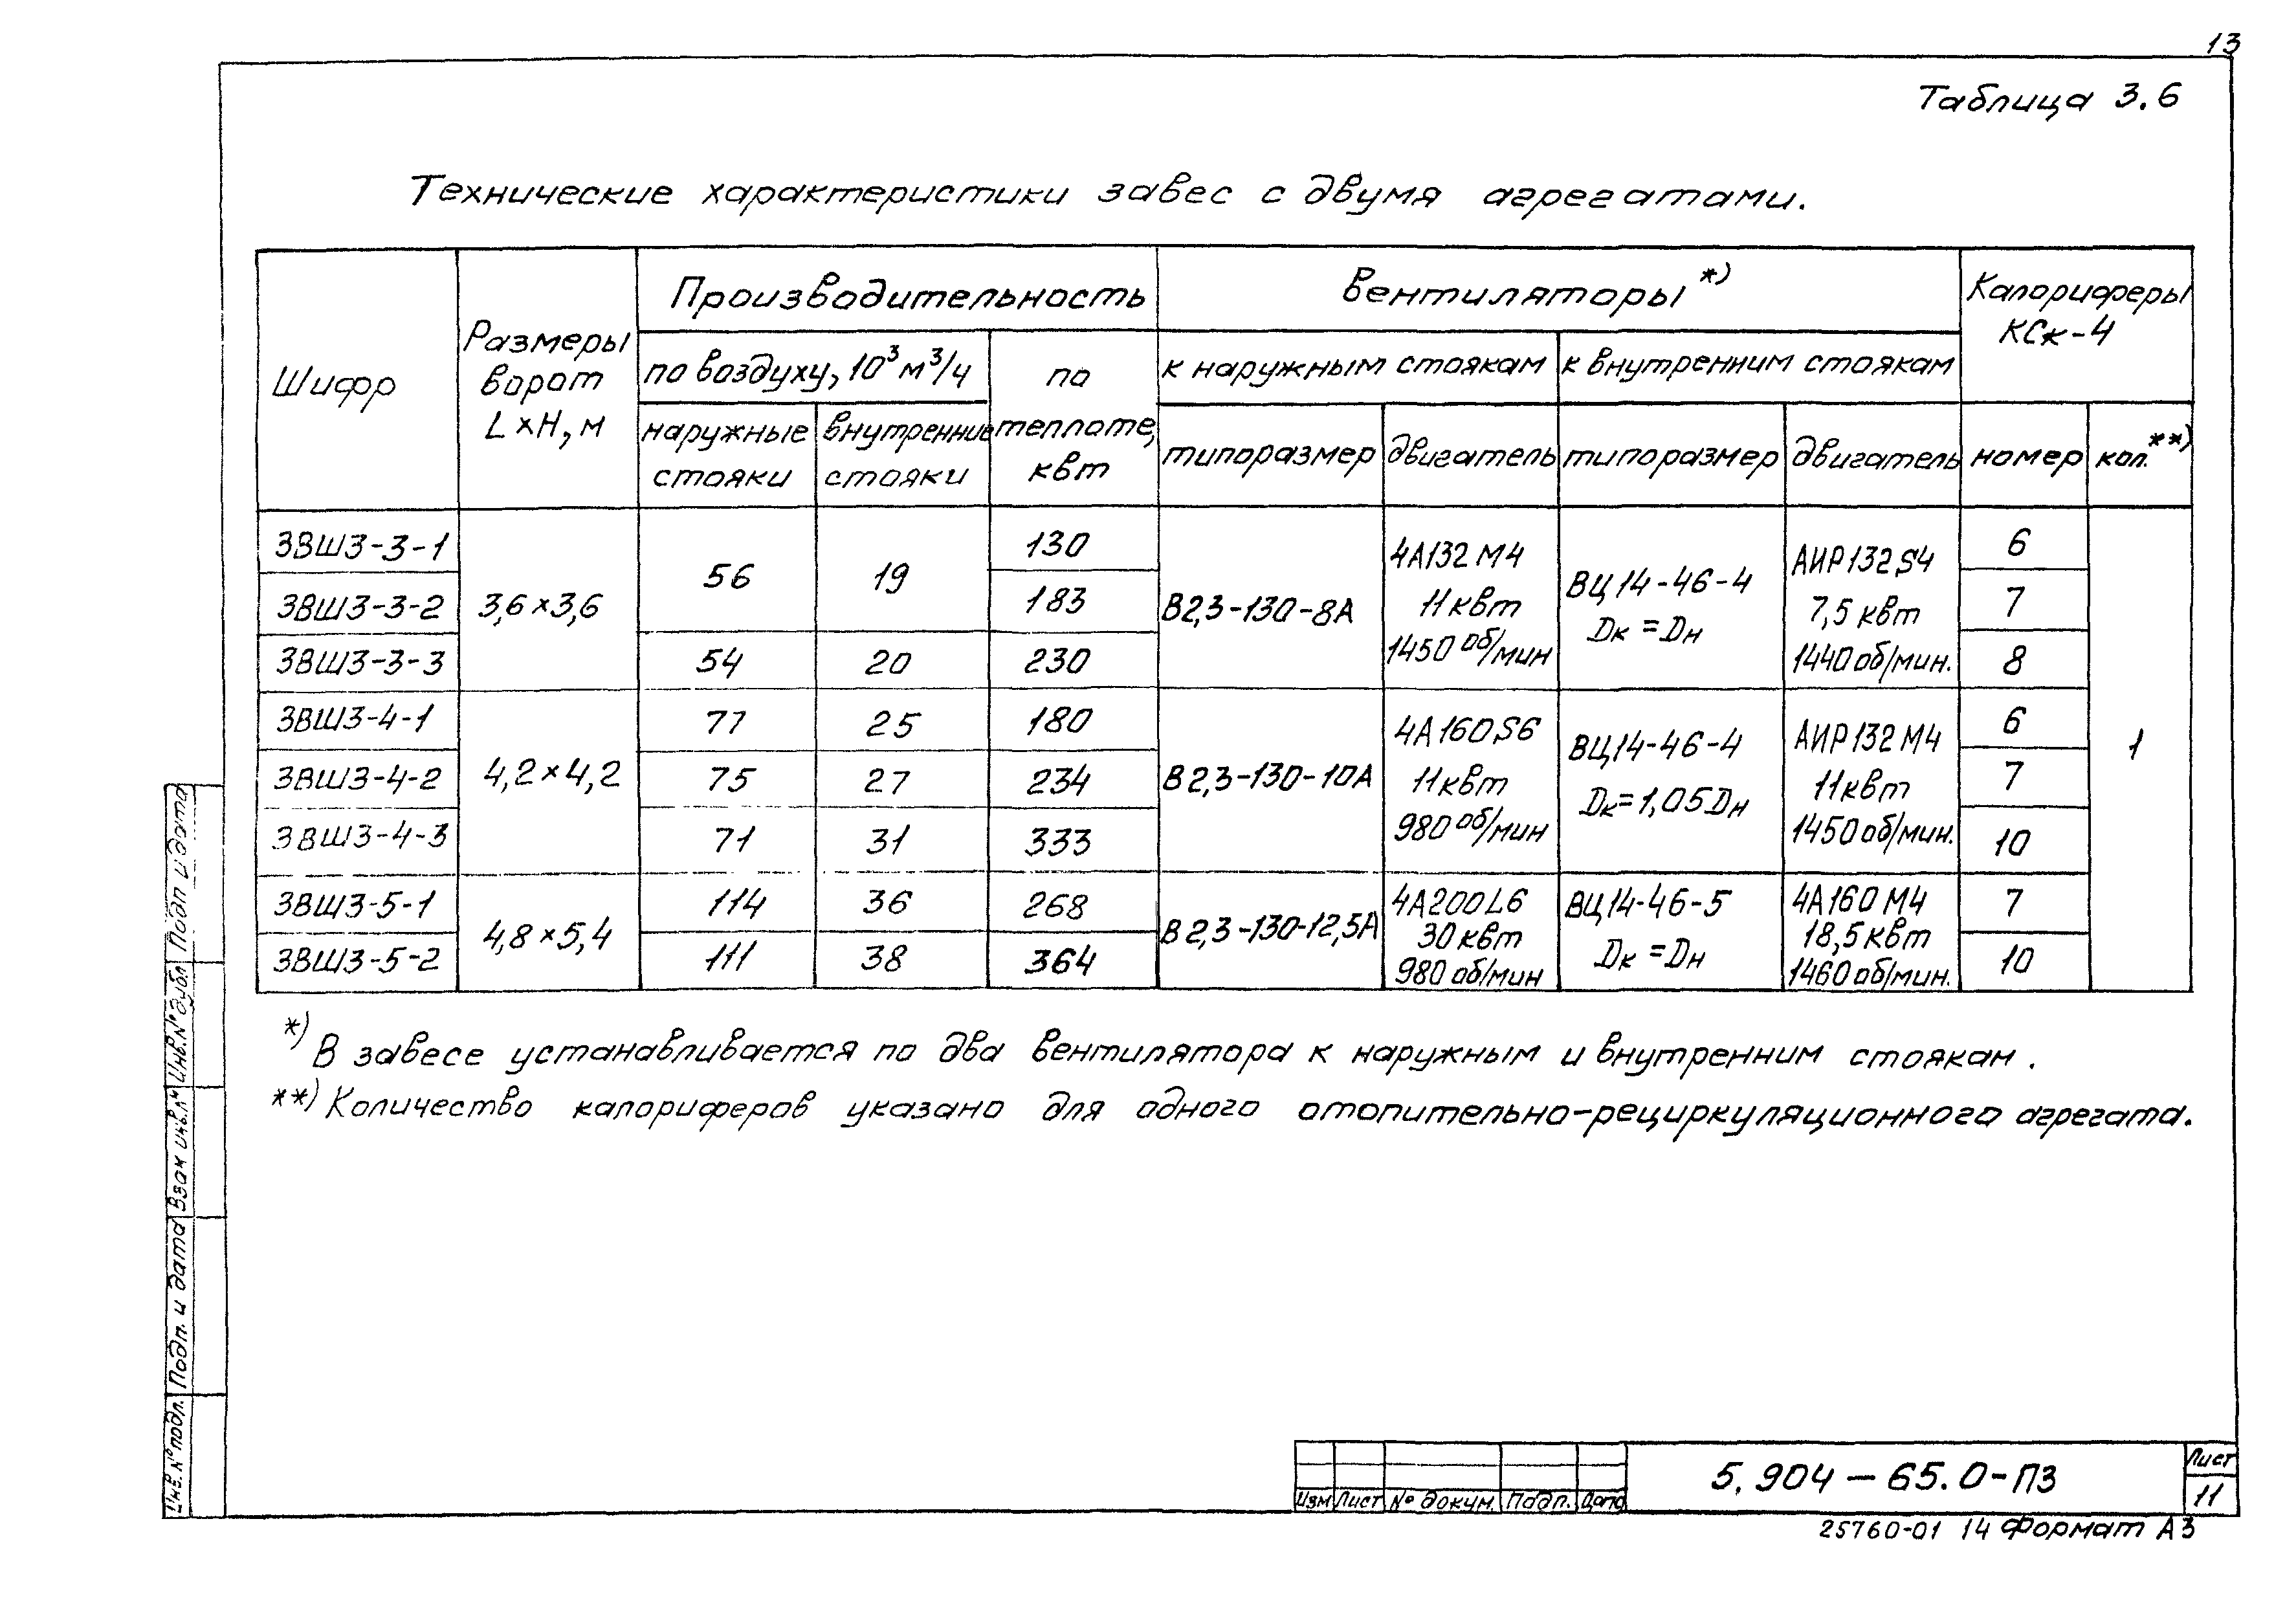 13
Таблица 3.6
Технические характеристики завес с двумя агрегатами.
Шифр
Размеры
ворот
L×H, м
Производительность
по воздуху, 10³ м³/ч
наружные
стояки
внутренние
стояки
по
теплоте,
квт
Вентиляторы *)
к наружным стоякам
к внутренним стоякам
типоразмер
двигатель
типоразмер
двигатель
Калориферы
КСк-4
номер
кол. **)
ЗВШ3-3-1
ЗВШ3-3-2
ЗВШ3-3-3
3,6×3,6
56
19
54
20
130
183
230
В2,3-130-8А
4А132М4
11квт
1450 об/мин
ВЦ14-46-4
Dк =Dн
АИР132S4
7,5 квт
1440 об/мин.
6
7
8
ЗВШ3-4-1
ЗВШ3-4-2
ЗВШ3-4-3
4,2×4,2
77
25
180
75
27
234
71
31
333
В2,3-130-10А
4А160S6
11квт
980 об/мин
ВЦ14-46-4
Dк=1,05Dн
АИР132М4
11квт
1450 об/мин.
6
7
10
1
ЗВШ3-5-1
ЗВШ3-5-2
4,8×5,4
114
36
268
111
38
364
В2,3-130-12,5А
4А200L6
30квт
980 об/мин
ВЦ14-46-5
Dк =Dн
4А160М4
18,5квт
1460 об/мин.
7
10
*) В завесе устанавливается по два вентилятора к наружным и внутренним стоякам.
**) Количество калориферов указано для одного отопительно-рециркуляционного агрегата.
Инв.№подл.
Подп. и дата
Взам инв.№
Инв.№дубл
Подп и дата
Изм
Лист
№ докум.
Подп.
Дата
5.904-65.0-ПЗ
Лист
11
25760-01 14 Формат А3